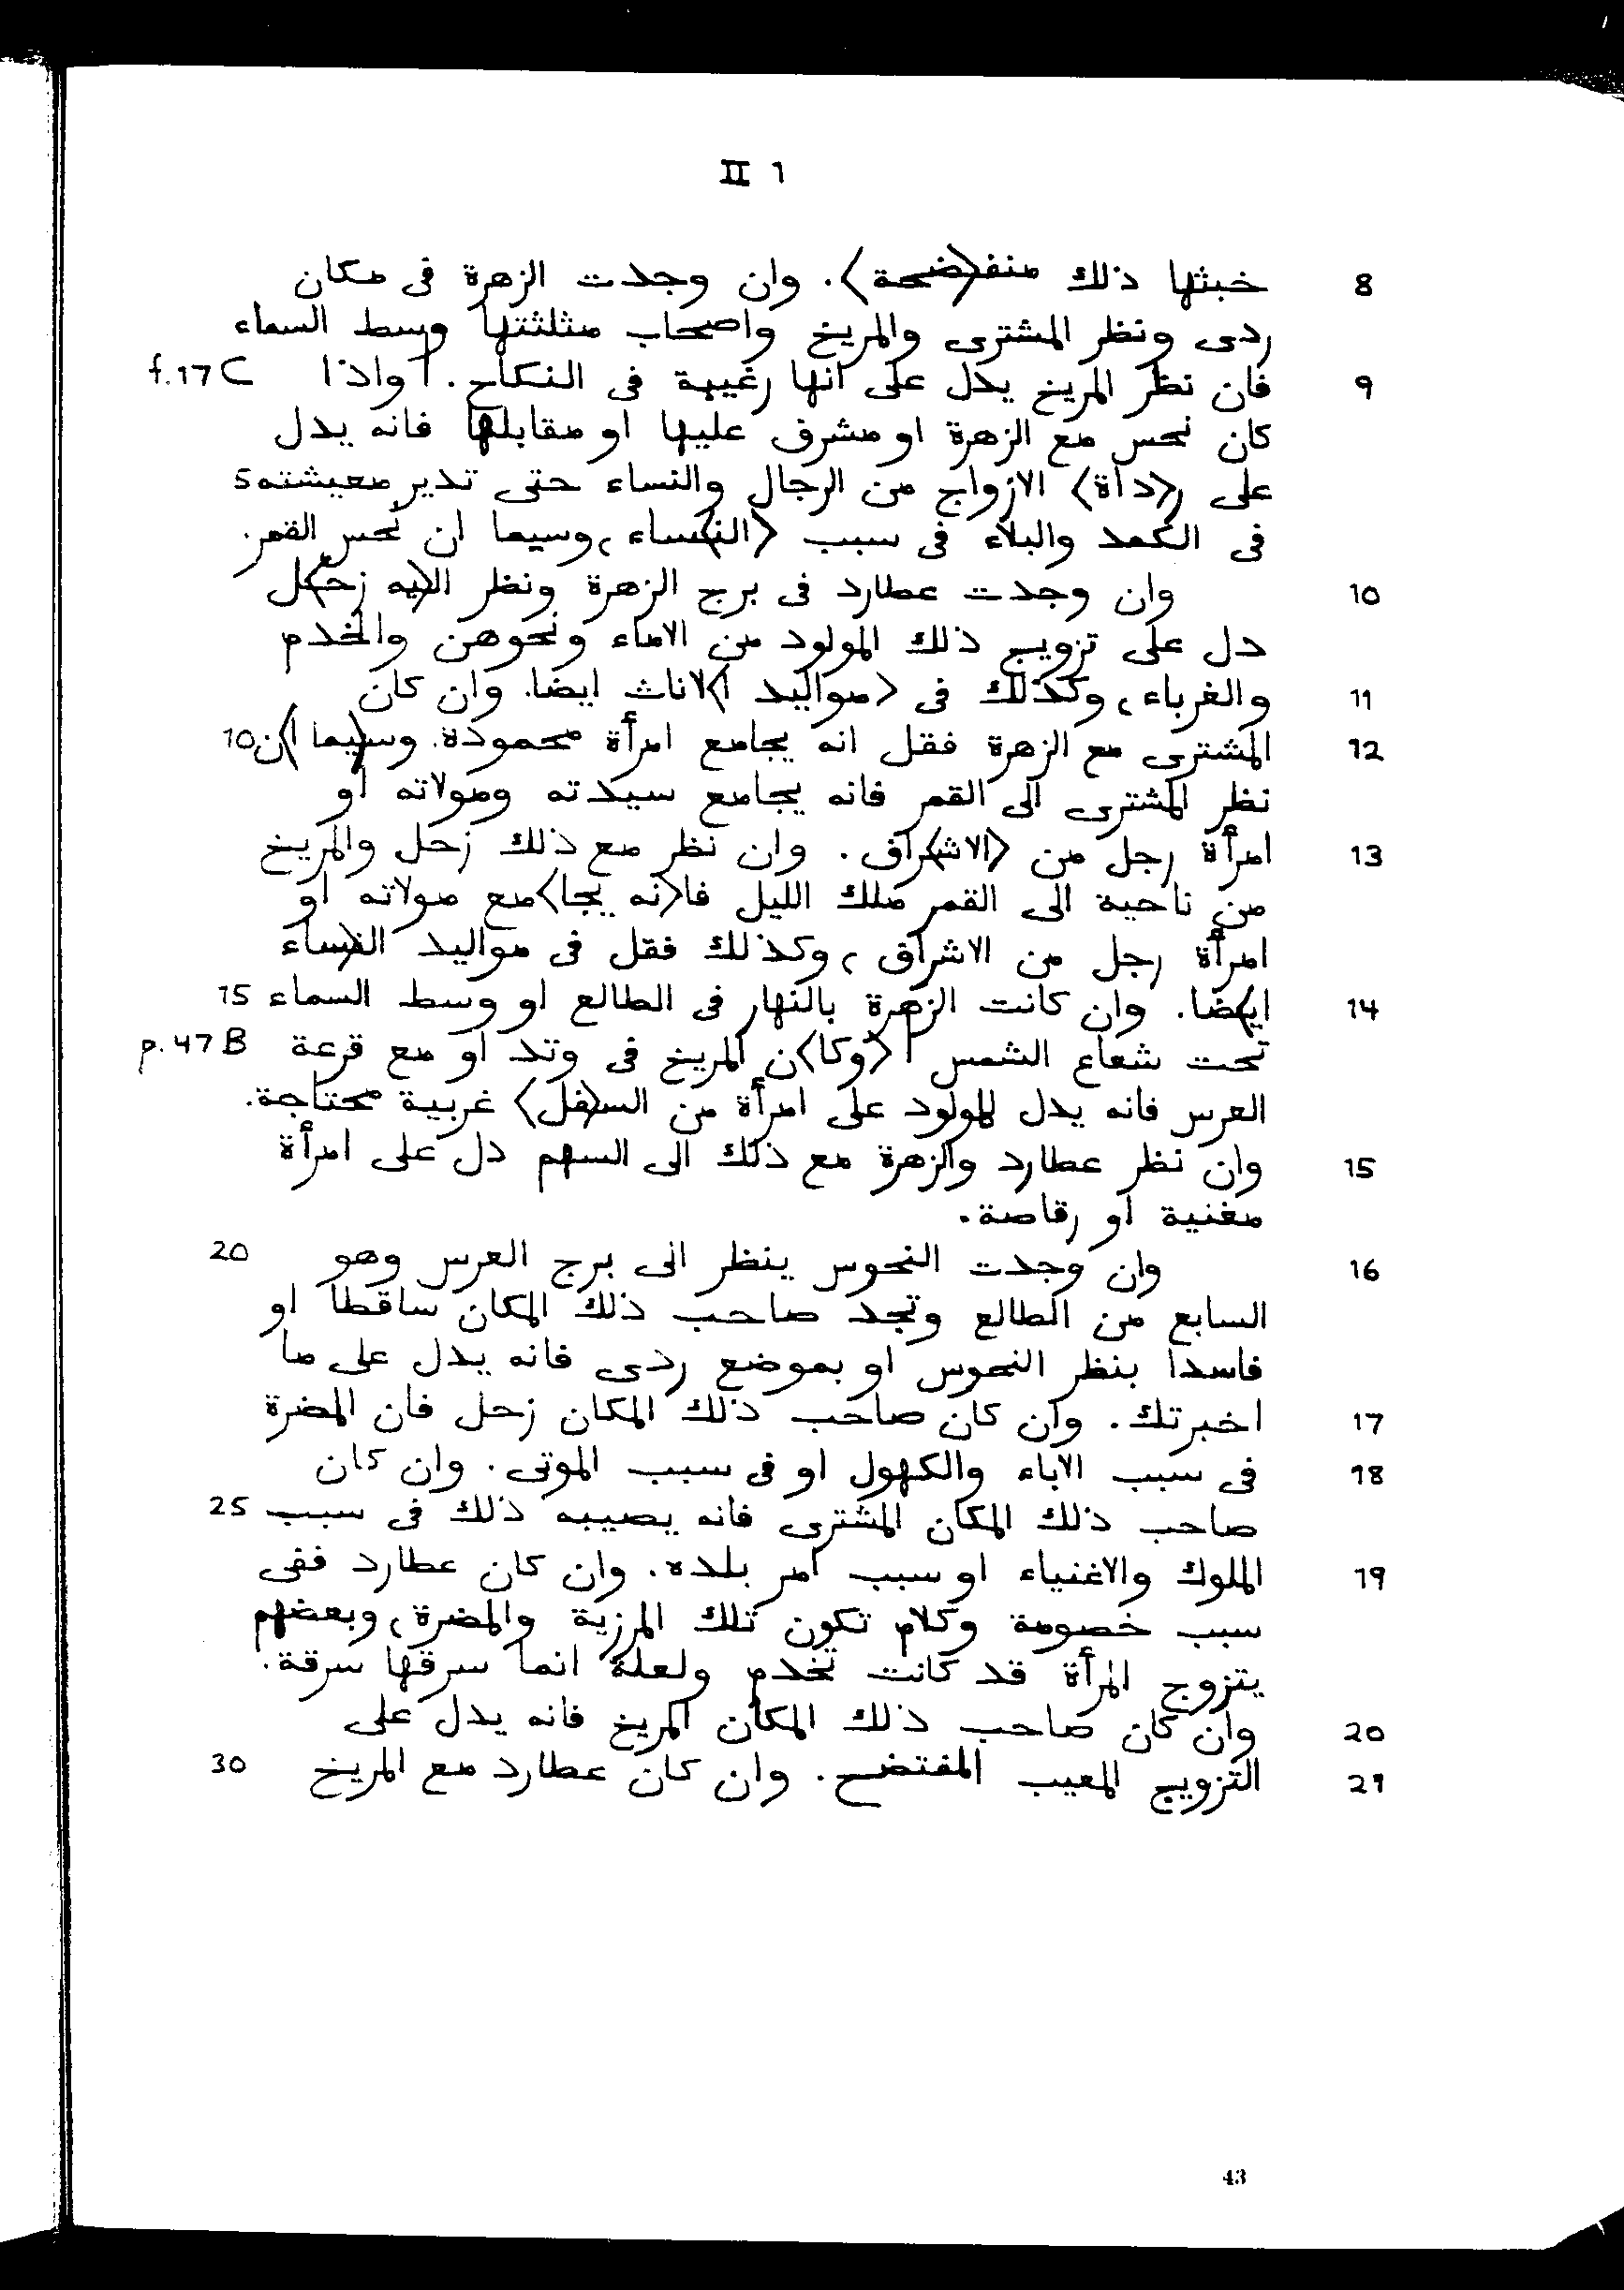 II 1
8 خبثها ذلك منف〈ضحة〉. وان وجدت الزهرة فى مكان
ردى ونظر المشترى والمريخ واصحاب مثلثتها وسط السماء
9 فان نظر المريخ يدل على انها رغيبة فى النكاح. | واذا f.17 C
كان نحس مع الزهرة او مشرف عليها او مقابلها فانه يدل
على ر〈داة〉 الازواج من الرجال والنساء حتى تدير معيشته 5
فى الكمد والبلاء فى سبب 〈الن〉ساء، وسيما ان نحس القمر.
10 وان وجدت عطارد فى برج الزهرة ونظر ال〈يه زح〉ل
دل على تزويج ذلك المولود من الاماء ونحوهن والخدم
11 والغرباء، وكذلك فى 〈مواليد ا〉لاناث ايضا. وان كان
12 المشترى مع الزهرة فقل انه يجامع امرأة محمودة. وس〈يما ا〉ن 10
نظر المشترى الى القمر فانه يجامع سيدته ومولاته او
13 امرأة رجل من 〈الاش〉راف. وان نظر مع ذلك زحل والمريخ
من ناحية الى القمر ملك الليل فا〈نه يجا〉مع مولاته او
امرأة رجل من الاشراق، وكذلك فقل فى مواليد ال〈نساء
14 اي〉ضا. وان كانت الزهرة بالنهار فى الطالع او وسط السماء 15
تحت شعاع الشمس | 〈وكا〉ن المريخ فى وتد او مع قرعة p.47 B
العرس فانه يدل للمولود على امرأة من الس〈فل〉 غريبة محتاجة.
15 وان نظر عطارد والزهرة مع ذلك الى السهم دل على امرأة
مغنية او رقاصة.
16 وان وجدت النحوس ينظر الى برج العرس وهو 20
السابع من الطالع وتجد صاحب ذلك المكان ساقطا او
فاسدا بنظر النحوس او بموضع ردى فانه يدل على ما
17 اخبرتك. وان كان صاحب ذلك المكان زحل فان المضرة
18 فى سبب الاباء والكهول او فى سبب الموتى. وان كان
صاحب ذلك المكان المشترى فانه يصيبه ذلك فى سبب 25
19 الملوك والاغنياء او سبب امر بلده. وان كان عطارد ففى
سبب خصومة وكلام تكون تلك المرزية والمضرة، وبعضهم
يتزوج المرأة قد كانت تخدم ولعلة انما سرقها سرقة.
20 وان كان صاحب ذلك المكان المريخ فانه يدل على
21 التزويج المعيب المفتضح. وان كان عطارد مع المريخ 30
43